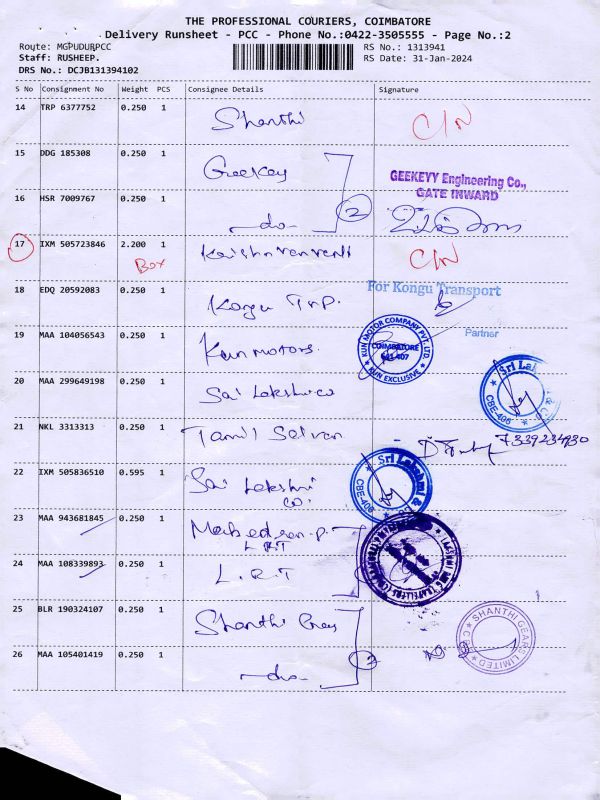 THE PROFESSIONAL COURIERS, COIMBATORE
Delivery Runsheet - PCC - Phone No.:0422-3505555 - Page No.:2
Route: MGPUDURPCC RS No.: 1313941
Staff: RUSHEEP. RS Date: 31-Jan-2024
DRS No.: DCJB131394102
S No Consignment No Weight PCS Consignee Details Signature
14 TRP 6377752 0.250 1 Shanthi C/N
15 DDG 185308 0.250 1 Geekay
GEEKEYY Engineering Co.,
GATE INWARD
16 HSR 7009767 0.250 1 -do- 2
17 IXM 505723846 2.200 1 C/N
Box
For Kongu Transport
18 EDQ 20592083 0.250 1 Kongu Trp.
Partner
19 MAA 104056543 0.250 1 Kun Motors.
KUN MOTOR COMPANY PVT. LTD.
COIMBATORE
641 407
KUN EXCLUSIVE
20 MAA 299649198 0.250 1 Sai Lakshmi co
Sri Lakshmi & Co
CBE-406
21 NKL 3313313 0.250 1 Tamil Selvan 7339234930
22 IXM 505836510 0.595 1 Sai Lakshmi
co.
Sri Lakshmi & Co
CBE-406
23 MAA 943681845 0.250 1
L.R.T
24 MAA 108339893 0.250 1 L.R.T
25 BLR 190324107 0.250 1 Shanthi Gears
SHANTHI GEARS LIMITED
26 MAA 105401419 0.250 1 -do- 2